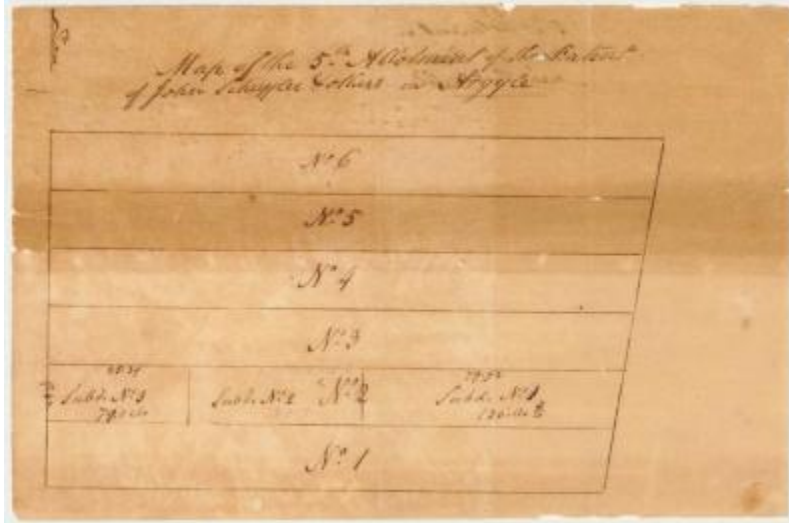 Map of the 5th Allotment of the Patent
of John Schuyler & others in Argyle
No 6
No 5
No 4
No 3
Subd. No 3
Subd. No 2
No 2
Subd. No 1
No 1